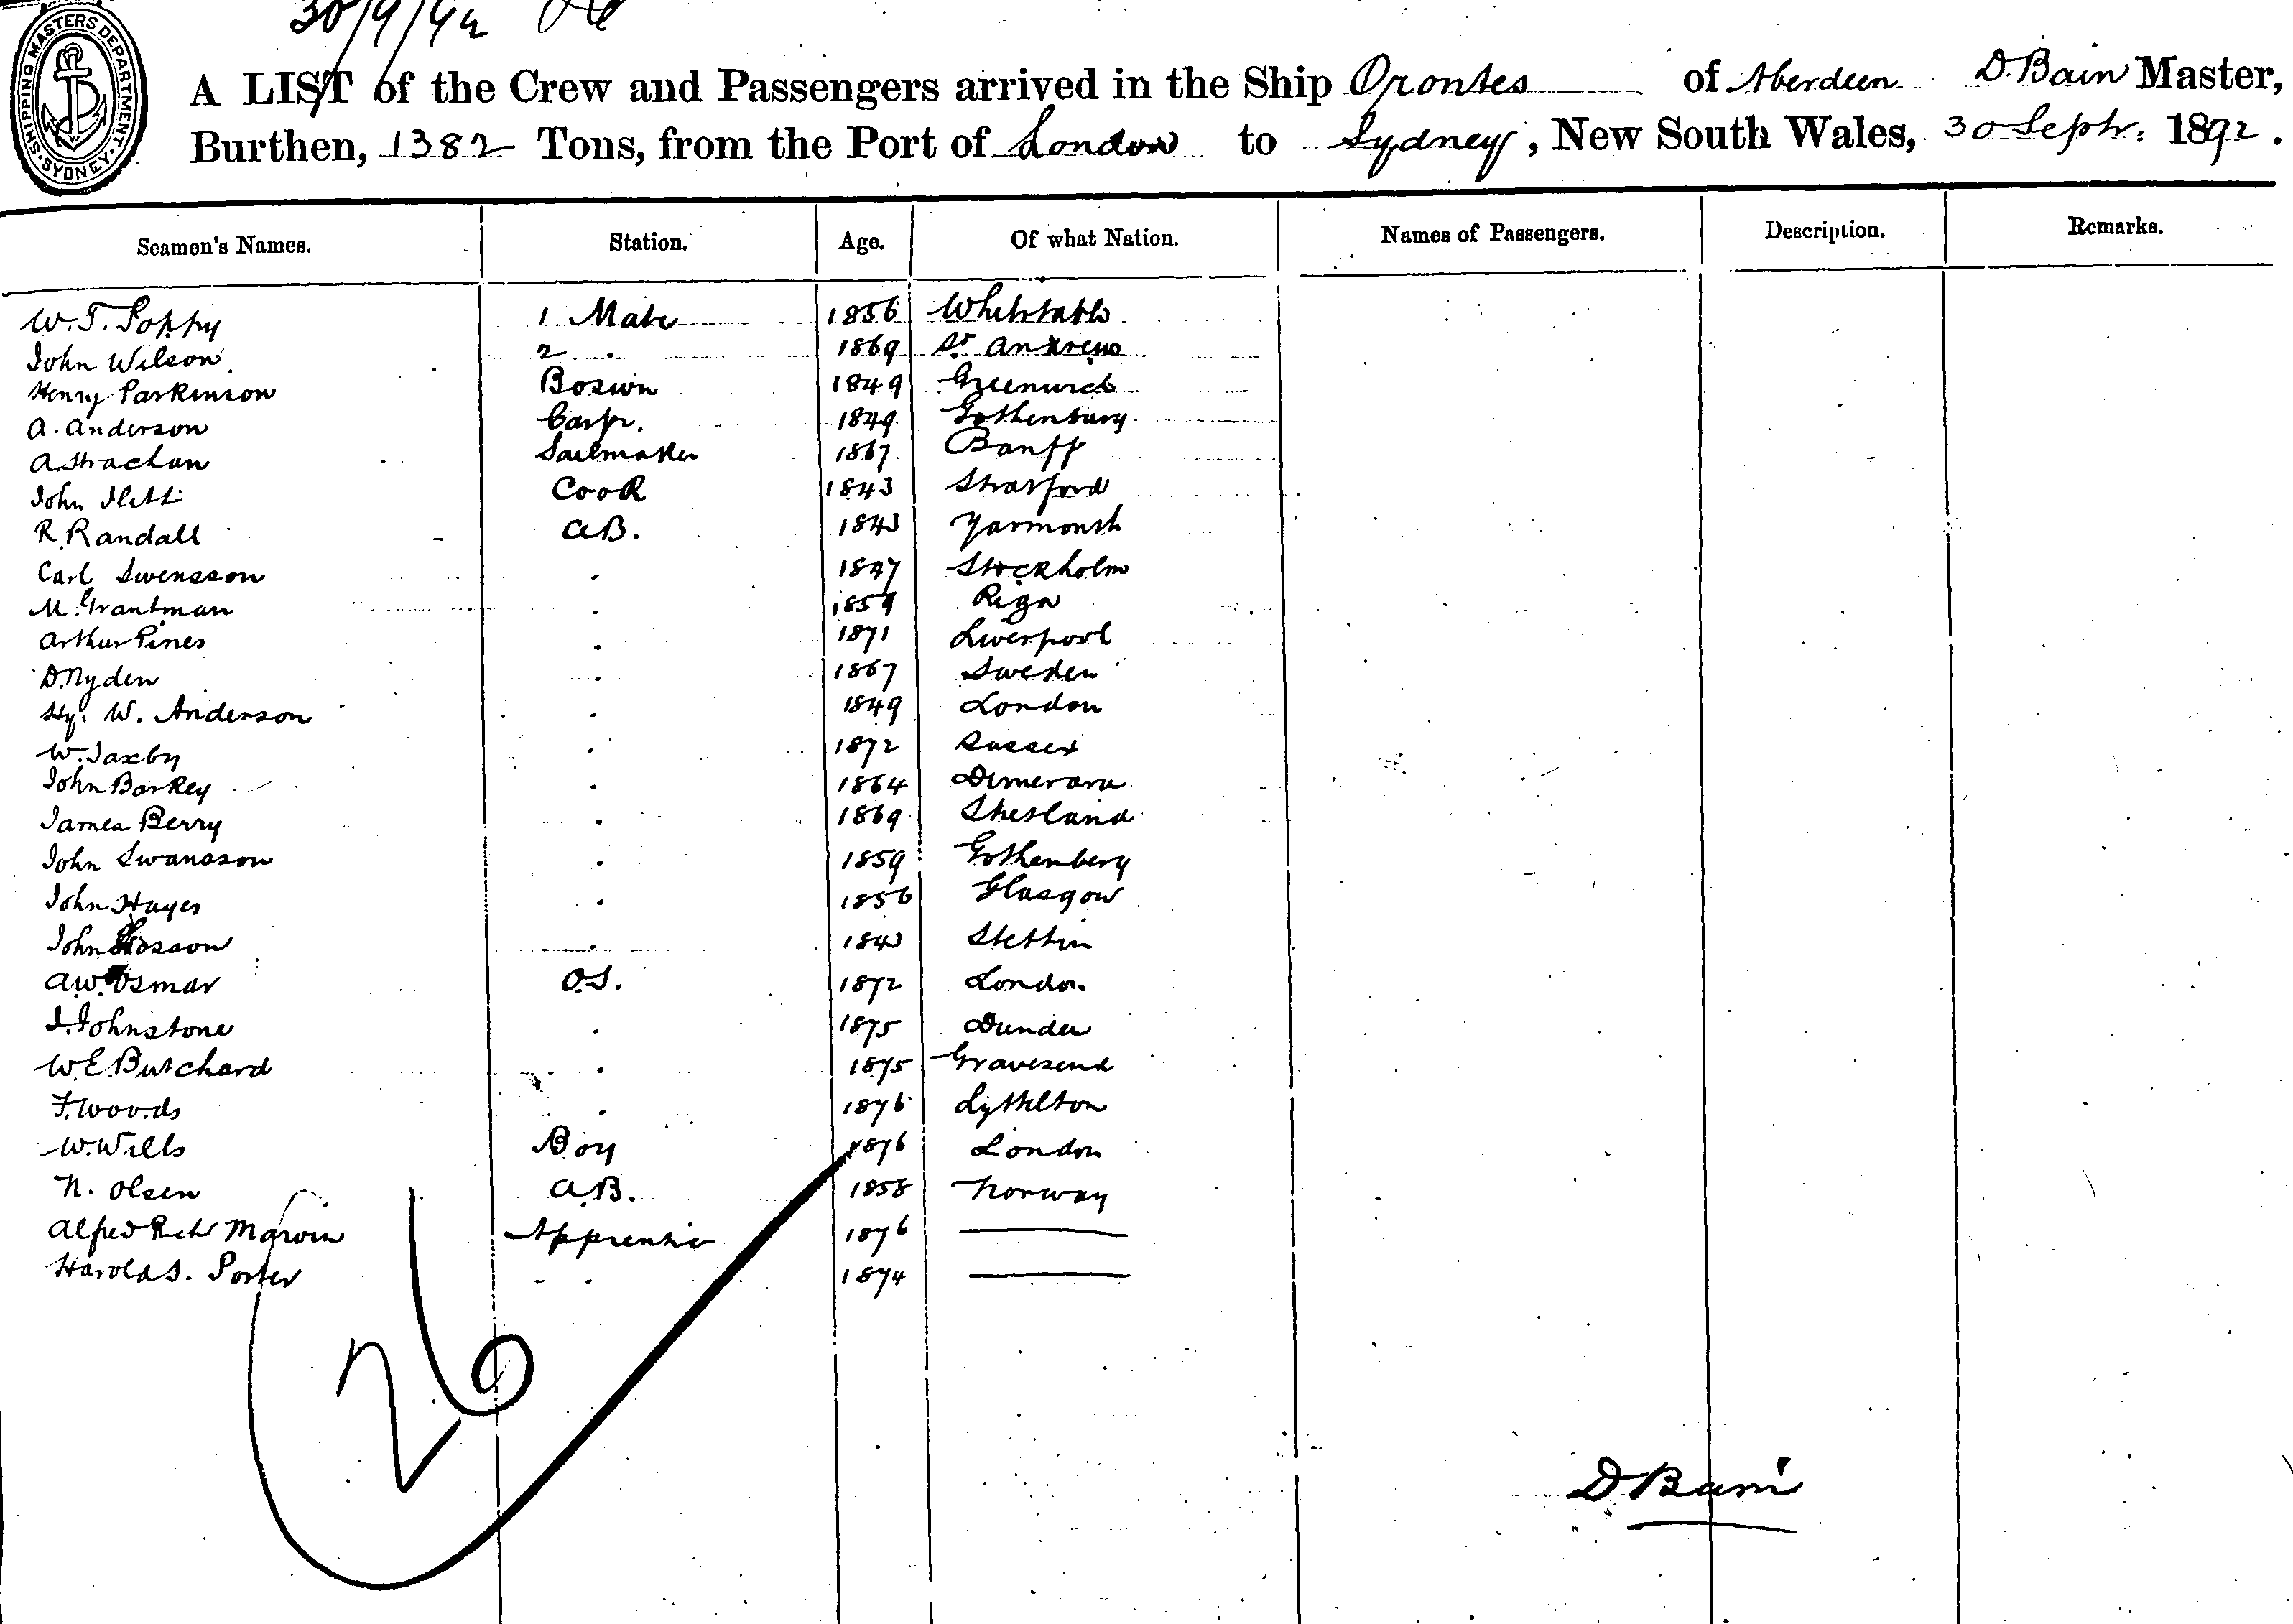 30/9/92
SHIPPING MASTERS DEPARTMENT. SYDNEY.
A LIST of the Crew and Passengers arrived in the Ship Orontes of Aberdeen D. Bain Master,
Burthen, 1382 Tons, from the Port of London to Sydney, New South Wales, 30 Septr. 1892.
Seamen's Names. Station. Age. Of what Nation. Names of Passengers. Description. Remarks.
W. T. Poppy 1 Mate 1856 Whitstable
John Wilson 2 " 1869 St Andrews
Henry Parkinson Boswn 1849 Greenwich
A. Anderson Carpr. 1849 Gothenburg
A. Strachan Sailmaker 1867 Banff
John Iletti Cook 1843 Stratford
R. Randall A.B. 1843 Yarmouth
Carl Swensson " 1847 Stockholm
M. Grantman " 1859 Riga
Arthur Pines " 1871 Liverpool
D. Nyden " 1867 Sweden
Hy. W. Anderson " 1849 London
W. Saxby " 1872 Sussex
John Barkey " 1864 Dimerara
James Berry " 1869 Shetland
John Swansson " 1859 Gothenberg
John Hayes " 1856 Glasgow
John 1843 Stettin
A.W. Osmar O.S. 1872 London
J. Johnstone " 1875 Dundee
W.E. Butchard " 1875 Gravesend
F. Woods " 1876 Lyttelton
W. Wills Boy 1876 London
N. Olsen A.B. 1858 Norway
Alfred Richd Marvin Apprentice 1876
Harold S. Porter " 1874
26
D Bain